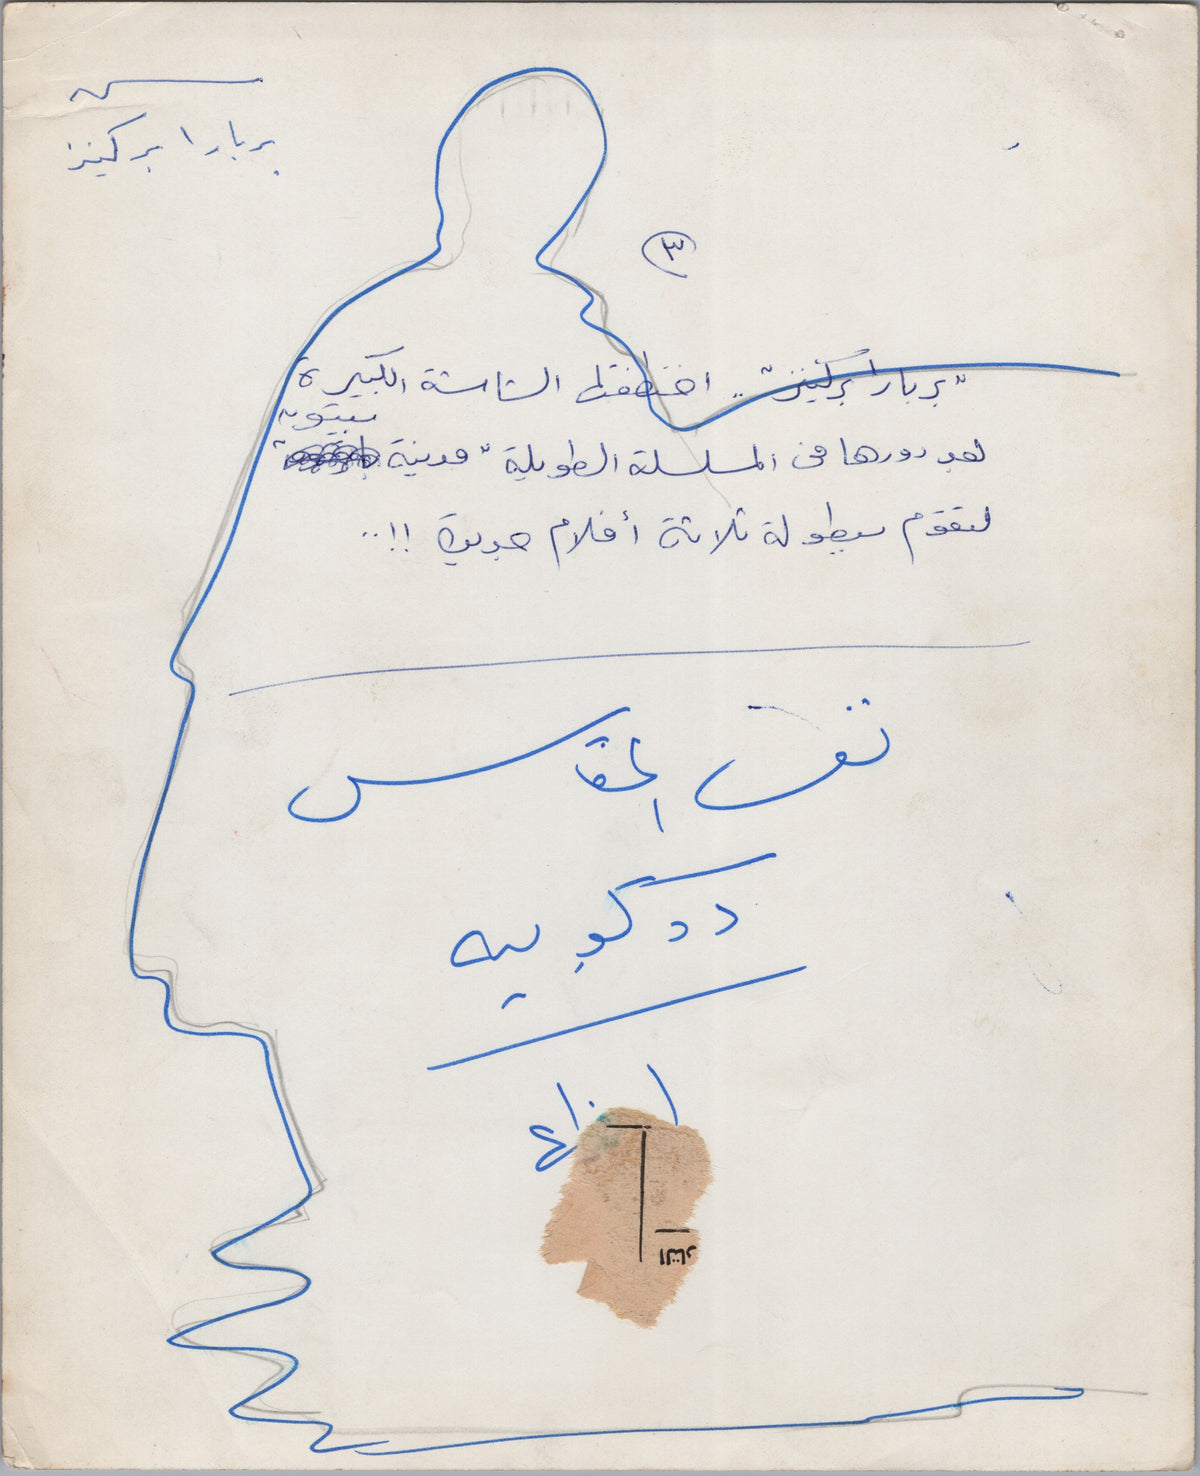 بربارا بركينز
٣
"بربارا بركينز" .. اختطفتها الشاشة الكبيرة
بعد دورها فى المسلسلة الطويلة "مدينة بيتون"
لتقوم ببطولة ثلاثة أفلام جديدة !!..
نفس المقاس
ديكوبيه
التار